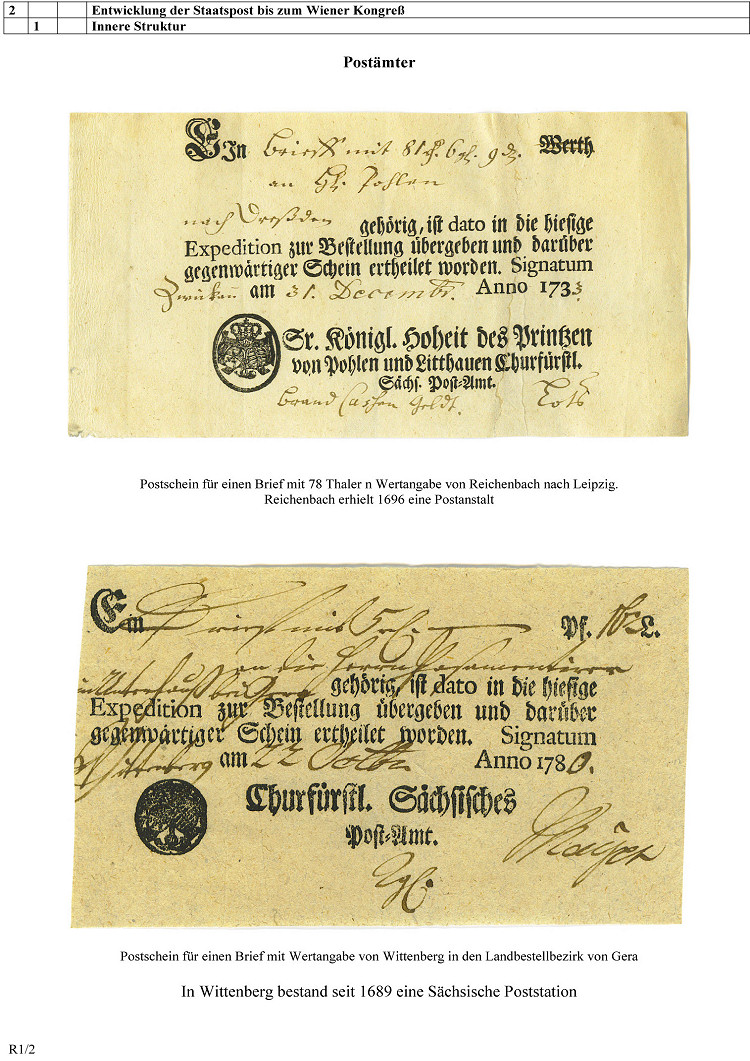 2 Entwicklung der Staatspost bis zum Wiener Kongreß
1 Innere Struktur
Postämter
EIn brieff mit 81 6 9 Werth
an H. Pohlen
nach Dreßden gehörig, ist dato in die hiesige
Expedition zur Bestellung übergeben und darüber
gegenwärtiger Schein ertheilet worden. Signatum
Zwickau am 31. Decembr. Anno 1733
Sr. Königl. Hoheit des Printzen
von Pohlen und Litthauen Churfürstl.
Sächs. Post-Amt.
brand Cassen Geldt.
Postschein für einen Brief mit 78 Thaler n Wertangabe von Reichenbach nach Leipzig.
Reichenbach erhielt 1696 eine Postanstalt
Ein Brief mit Pf. L.
an die Herrn Posamentirer
in Unterhauß bei Gera gehörig, ist dato in die hiesige
Expedition zur Bestellung übergeben und darüber
gegenwärtiger Schein ertheilet worden. Signatum
Wittenberg am 22 Octbr Anno 1780.
Churfürstl. Sächsisches
Post-Amt.
Postschein für einen Brief mit Wertangabe von Wittenberg in den Landbestellbezirk von Gera
In Wittenberg bestand seit 1689 eine Sächsische Poststation
R1/2